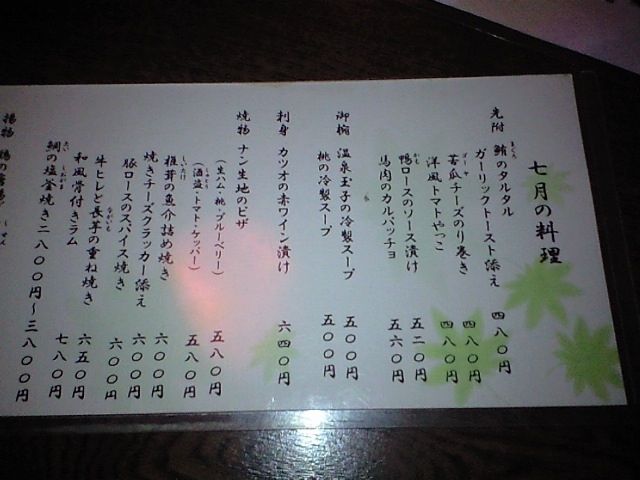 七月の料理
先附 鮪のタルタル
ガーリックトースト添え 四八〇円
苦瓜チーズのり巻き 四八〇円
洋風トマトやっこ 四八〇円
鴨ロースのソース漬け 五二〇円
馬肉のカルパッチョ 五六〇円
御椀 温泉玉子の冷製スープ 五〇〇円
桃の冷製スープ 五〇〇円
刺身 カツオの赤ワイン漬け 六四〇円
焼物 ナン生地のピザ
(生ハム・桃・ブルーベリー) 五八〇円
(酒盗・トマト・ケッパー) 五八〇円
椎茸の魚介詰め焼き 六〇〇円
焼きチーズクラッカー添え 六〇〇円
豚ロースのスパイス焼き 六〇〇円
牛ヒレと長芋の重ね焼き 六五〇円
和風骨付きラム 七八〇円
鯛の塩釜焼き 二八〇〇円〜三八〇〇円
揚物